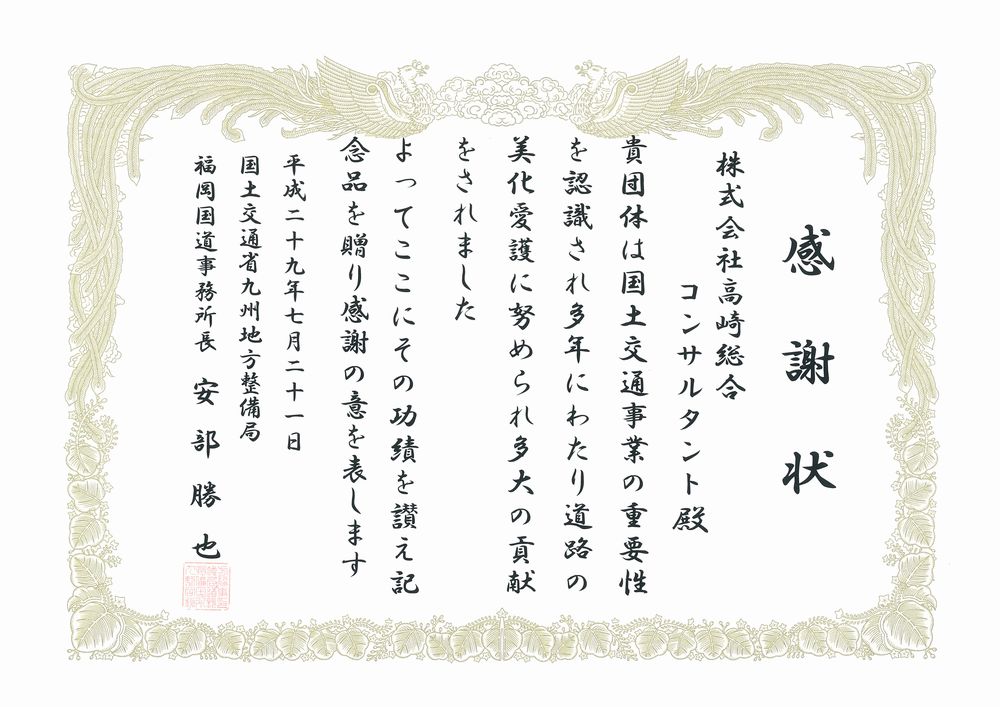 感謝状
株式会社高崎総合
コンサルタント殿
貴団体は国土交通事業の重要性
を認識され多年にわたり道路の
美化愛護に努められ多大の貢献
をされました
よってここにその功績を讃え記
念品を贈り感謝の意を表します
平成二十九年七月二十一日
国土交通省九州地方整備局
福岡国道事務所長 安部勝也